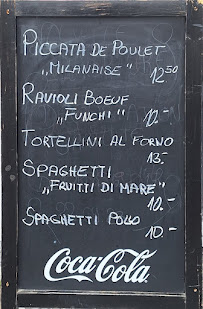 PICCATA DE POULET
„MILANAISE" 12.50
RAVIOLI BOEUF
„FUNGHI" 10.-
TORTELLINI AL FORNO
13.-
SPAGHETTI
„FRUITTI DI MARE"
10.-
SPAGHETTI POLLO
10.-
Coca-Cola